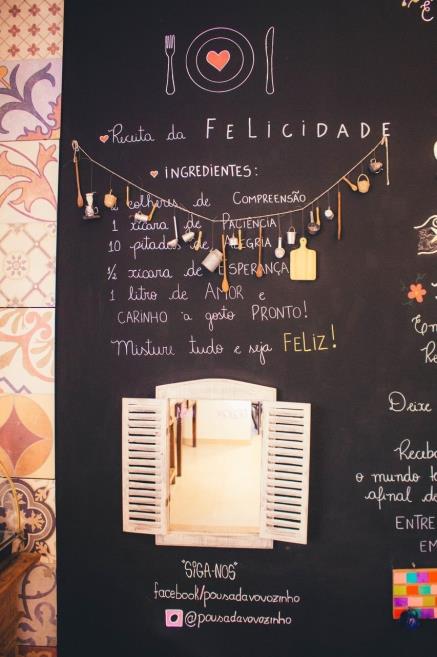 Receita da FELICIDADE
INGREDIENTES:
2 colheres de COMPREENSÃO
1 xícara de PACIÊNCIA
10 pitadas de ALEGRIA
½ xícara de ESPERANÇA
1 litro de AMOR e
CARINHO à gosto PRONTO!
Misture tudo e seja FELIZ!
Deixe
Receba
o mundo te
afinal de
ENTRE
EM
"SIGA-NOS"
facebook/pousadavovozinho
@pousadavovozinho